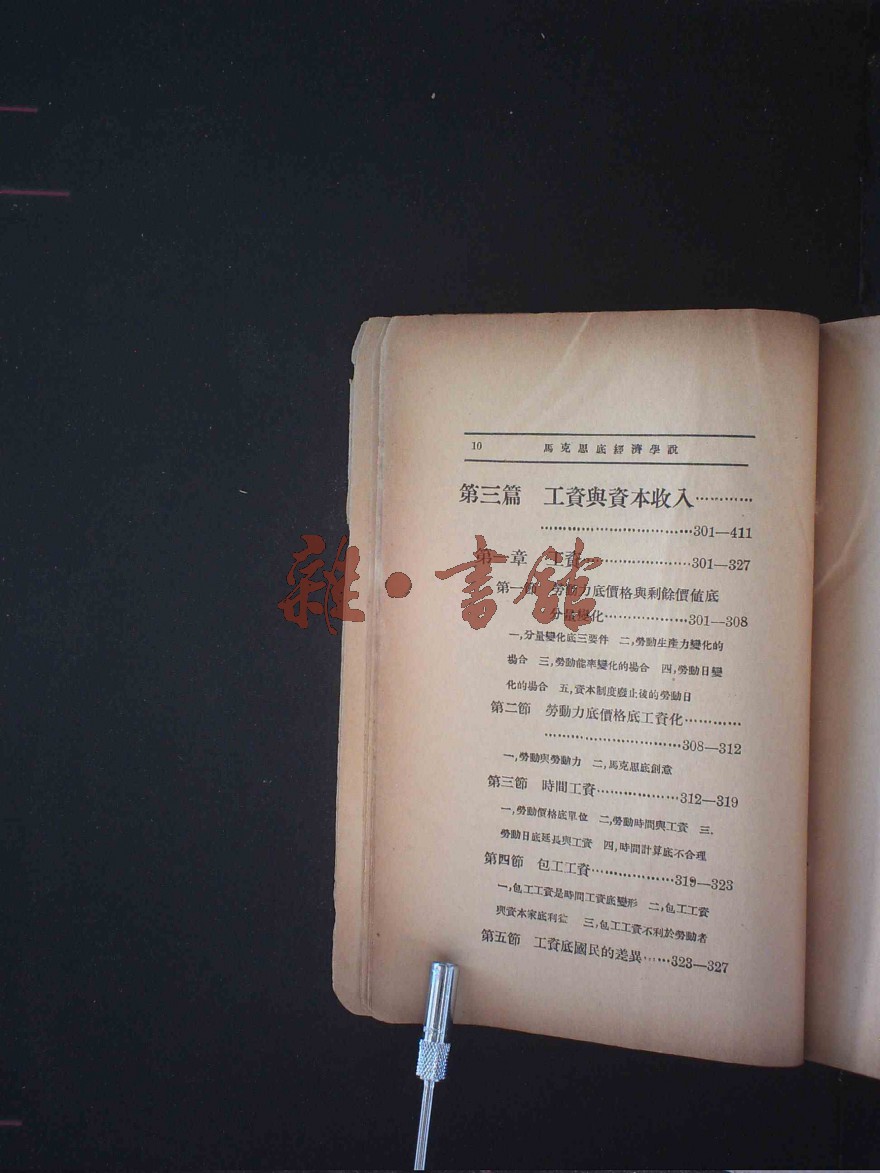 10 馬克思底經濟學說
第三篇 工資與資本收入…………
……………………………301—411
第一章 工資……………………301—327
第一節 勞動力底價格與剩餘價値底
分量變化………………301—308
一,分量變化底三要件 二,勞動生產力變化的
場合 三,勞動能率變化的場合 四,勞動日變
化的場合 五,資本制度廢止後的勞動日
第二節 勞動力底價格底工資化…………
…………………………308—312
一,勞動與勞動力 二,馬克思底創意
第三節 時間工資………………312—319
一,勞動價格底單位 二,勞動時間與工資 三.
勞動日底延長與工資 四,時間計算底不合理
第四節 包工工資………………319—323
一,包工工資是時間工資底變形 二,包工工資
與資本家底利益 三,包工工資不利於勞動者
第五節 工資底國民的差異……323—327
雜·書館